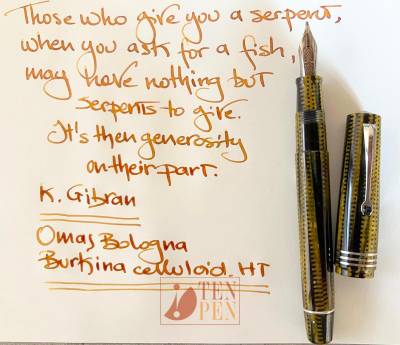 Those who give you a serpent,
when you ask for a fish,
may have nothing but
serpents to give.
It's then generosity
on their part.
K. Gibran
Omas Bologna
Burkina celluloid. HT
TEN
PEN